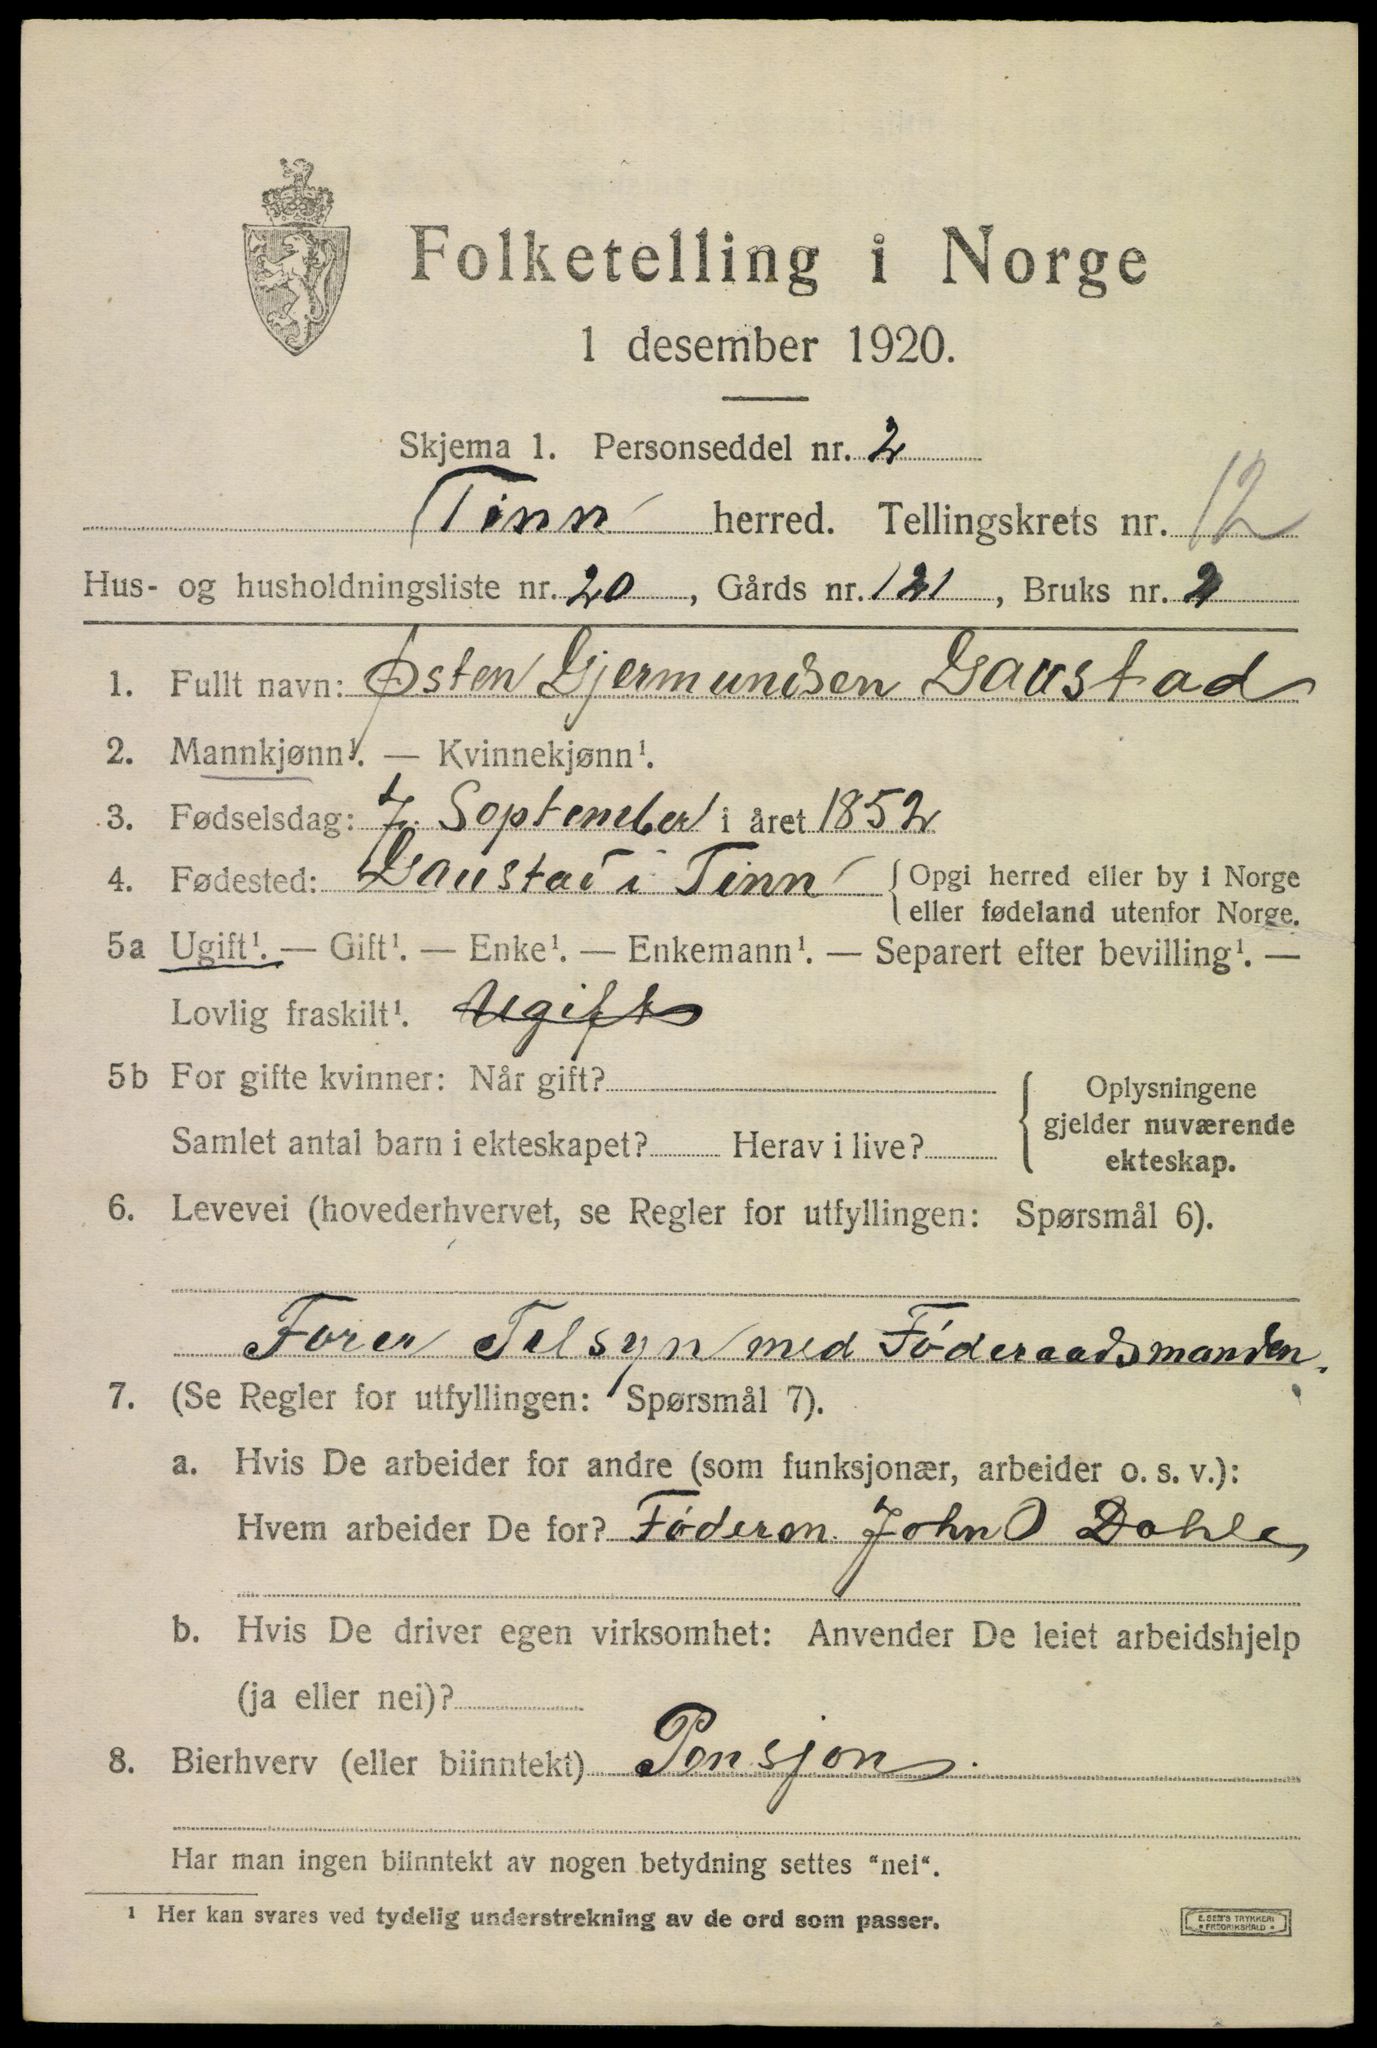 Folketelling i Norge
1 desember 1920.
Skjema 1. Personseddel nr. 2
Tinn herred. Tellingskrets nr. 12
Hus- og husholdningsliste nr. 20, Gårds nr. 121, Bruks nr. 2
1. Fullt navn: Østen Gjermundsen Gaustad
2. Mannkjønn¹. — Kvinnekjønn¹.
3. Fødselsdag: 7 September i året 1852
4. Fødested: Gaustad i Tinn { Opgi herred eller by i Norge
eller fødeland utenfor Norge.
5a Ugift¹. — Gift¹. — Enke¹. — Enkemann¹. — Separert efter bevilling¹. —
Lovlig fraskilt¹. Ugift
5b For gifte kvinner: Når gift?
Samlet antal barn i ekteskapet? Herav i live?
{ Oplysningene
gjelder nuværende
ekteskap.
6. Levevei (hovederhvervet, se Regler for utfyllingen: Spørsmål 6).
Fører Tilsyn med Føderaadsmanden.
7. (Se Regler for utfyllingen: Spørsmål 7).
a. Hvis De arbeider for andre (som funksjonær, arbeider o. s. v.):
Hvem arbeider De for? Føderm. John O Dahle
b. Hvis De driver egen virksomhet: Anvender De leiet arbeidshjelp
(ja eller nei)?
8. Bierhverv (eller biinntekt) Pensjon.
Har man ingen biinntekt av nogen betydning settes "nei".
¹ Her kan svares ved tydelig understrekning av de ord som passer.
E. SEM'S TRYKKERI
FREDRIKSHALD